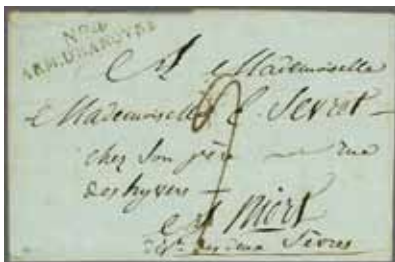 N° 4
ARM. D'HANOVRE
A Mademoiselle
Mademoiselle C. Sevrot
chez son père rue
des hyvers
A Niort
Dépt des deux Sèvres